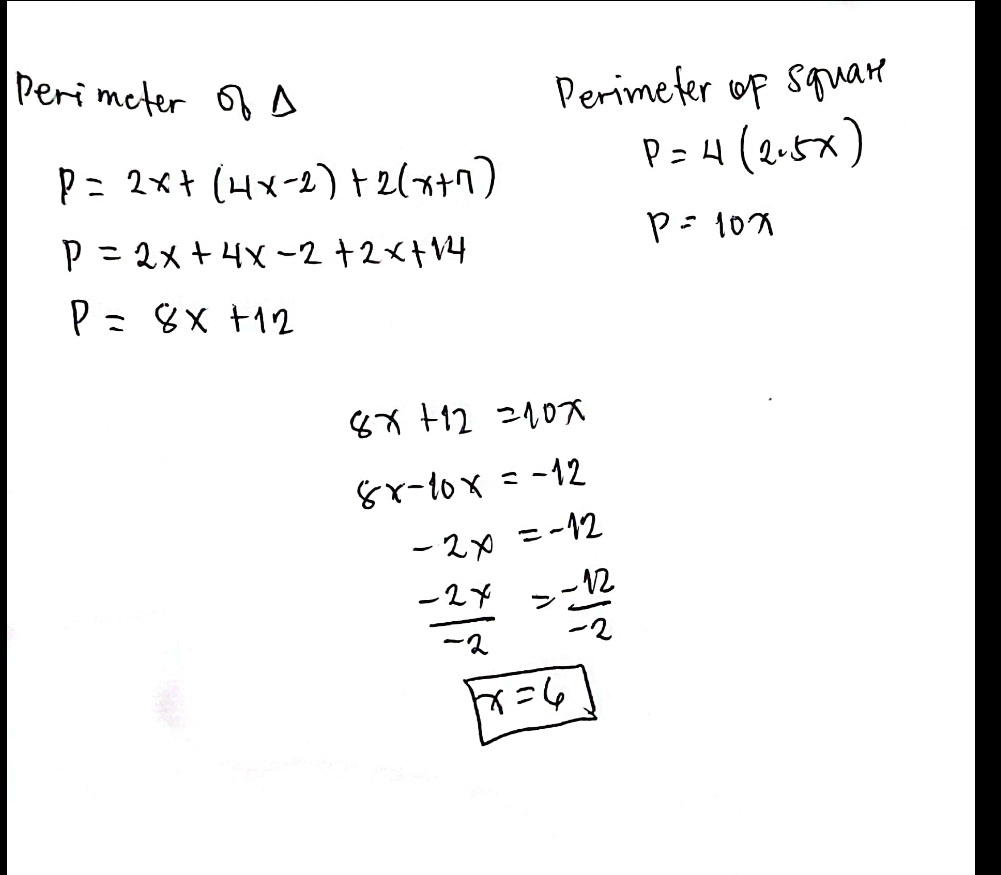 Perimeter of Δ
P = 2x + (4x-2) + 2(x+7)
P = 2x + 4x - 2 + 2x + 14
P = 8x + 12
Perimeter of square
P = 4 (2.5x)
P = 10x
8x + 12 = 10x
8x - 10x = -12
-2x = -12
-2x/-2 = -12/-2
x = 6